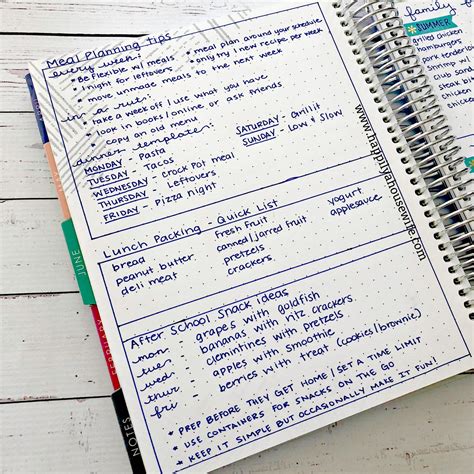 Meal Planning Tips
every week:
• Be flexible w/ meals • meal plan around your schedule
• 1 night for leftovers • only try 1 new recipe per week
• move unmade meals to the next week
in a rut:
• take a week off / use what you have
• look in books/online or ask friends
• copy an old menu
dinner template:
MONDAY - Pasta
TUESDAY - Tacos
WEDNESDAY - Crock Pot meal
THURSDAY - Leftovers
FRIDAY - Pizza night
SATURDAY - Grill it
SUNDAY - Low & Slow
Lunch Packing - Quick List
bread
peanut butter
deli meat
fresh fruit
canned/jarred fruit
pretzels
crackers
yogurt
applesauce
After School Snack Ideas
mon - grapes with goldfish
tue - bananas with ritz crackers
wed - clementines with pretzels
thur - apples with smoothie
fri - berries with treat (cookies/brownie)
* PREP BEFORE THEY GET HOME / SET A TIME LIMIT
* USE CONTAINERS FOR SNACKS ON THE GO
* KEEP IT SIMPLE BUT OCCASIONALLY MAKE IT FUN!
JUNE
FEBRUARY
NOTES
www.happilyahousewife.com
family
SUMMER
grilled chicken
hamburgers
pork tender
Shrimp
Club
steak
BBQ